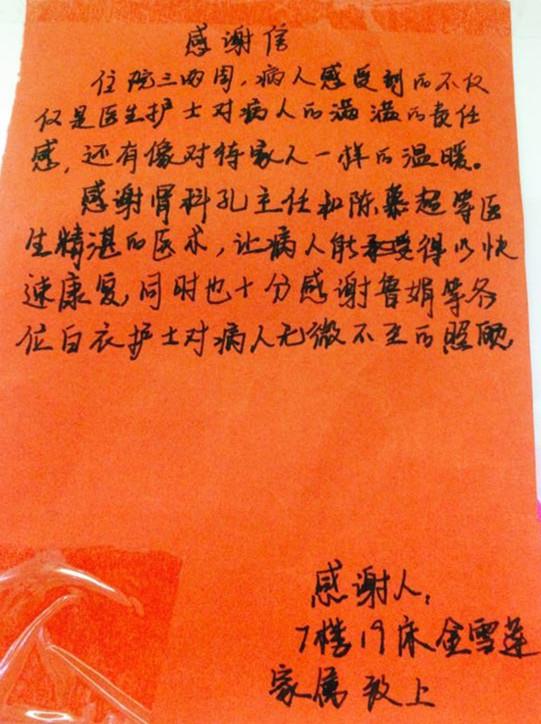 感谢信
住院三两周，病人感受到的不仅
仅是医生护士对病人的满满的责任
感，还有像对待家人一样的温暖。
感谢骨科孔主任和陈慕超等医
生精湛的医术，让病人能得以快
速康复，同时也十分感谢鲁娟等各
位白衣护士对病人无微不至的照顾
感谢人：
7楼19床金雪莲
家属敬上